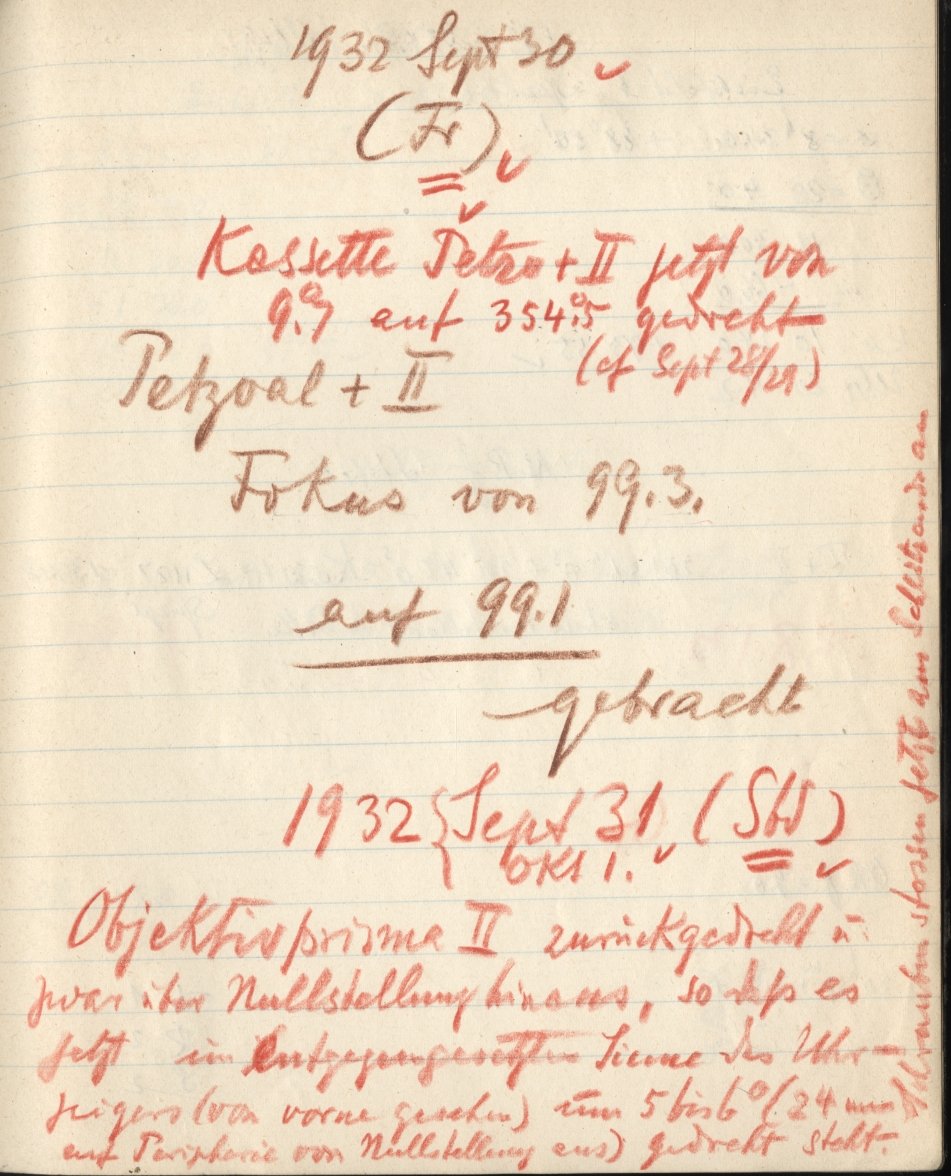 1932 Sept 30
(Fr)
Kassette Petzo + II jetzt von
9.°9 auf 354.°5 gedreht
(cf Sept 28/29)
Petzval + II
Fokus von 99.3.
auf 99.1
gebracht
1932 { Sept 31 (Sbd)
Okt 1.
Objektivprisma II zurückgedreht u.
zwar über Nullstellung hinaus, so daß es
jetzt im Entgegengesetzten Sinne des Uhr-
zeigers (von vorne gesehen) um 5 bis 6° (24 mm
auf Peripherie von Nullstellung aus) gedreht steht.
Schrauben stossen jetzt am Schlitzrande an